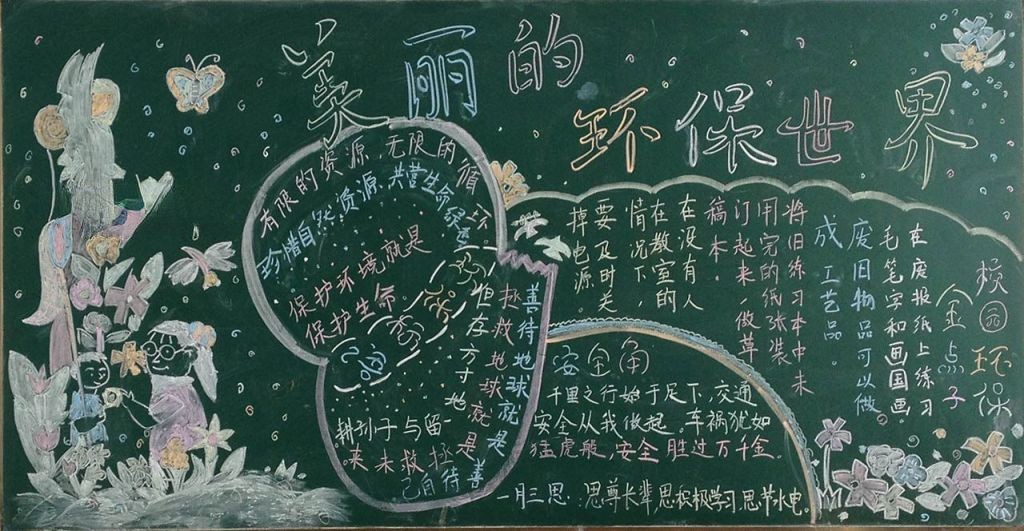 美丽的
环保世界
有限的资源,无限的循环。
珍惜自然资源,共营生命绿色
保护环境就是
保护生命
但存方寸地
留与子孙耕
善待地球就是善待自己
拯救地球就是拯救未来
校园环保
金点子
在废报纸上练习
毛笔字和画国画
废旧物品可以做
成工艺品。
将旧练习本中未
用完的纸张装
订起来,做草
稿本。
在没有人
在教室的
情况下,
要及时关
掉电源。
安全角
千里之行始于足下,交通
安全从我做起。车祸犹如
猛虎般,安全胜过万千金。
一月三思:思尊长辈思积极学习,思节水电。